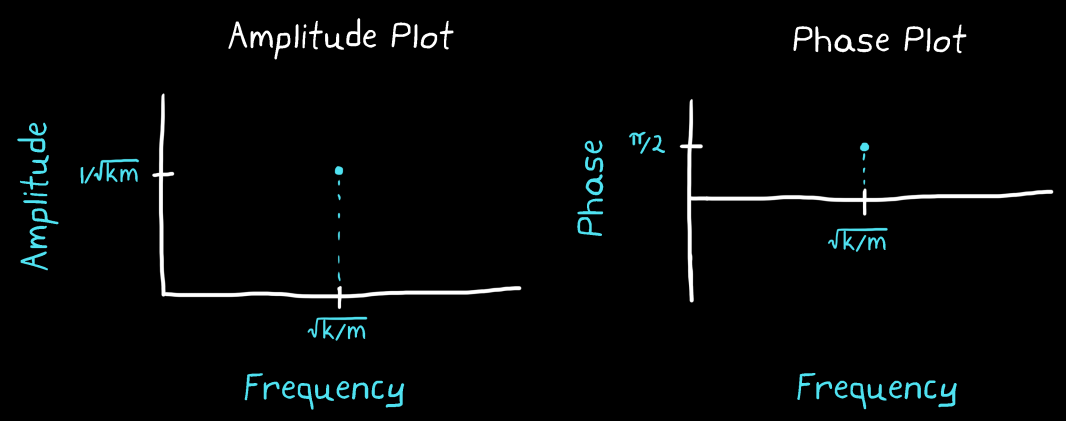 Amplitude Plot
Amplitude
1/√km
√k/m
Frequency
Phase Plot
Phase
π/2
√k/m
Frequency